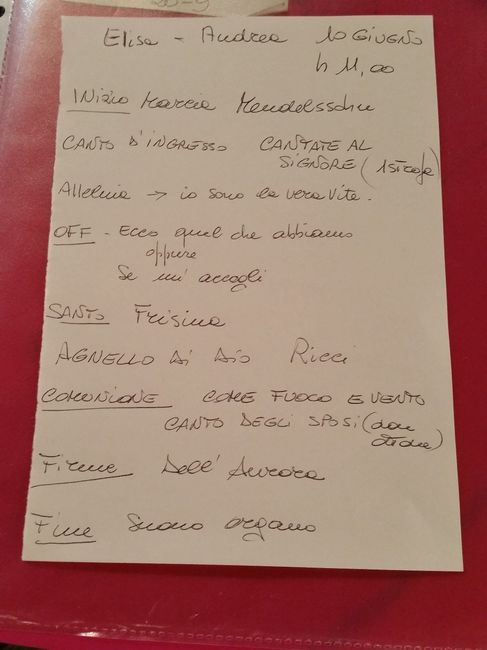 20-9
Elisa - Andrea 10 GIUGNO
h 11,00
INIZIO Marcia Mendelssohn
CANTO D'INGRESSO CANTATE AL
SIGNORE (1 strofa)
Alleluia → io sono la vera vite.
OFF - Ecco quel che abbiamo
oppure
Se mi accogli
SANTO Frisina
AGNELLO DI DIO Ricci
COMUNIONE COME FUOCO E VENTO
CANTO DEGLI SPOSI (don
Firme Dell'Aurora
Fine Suono organo